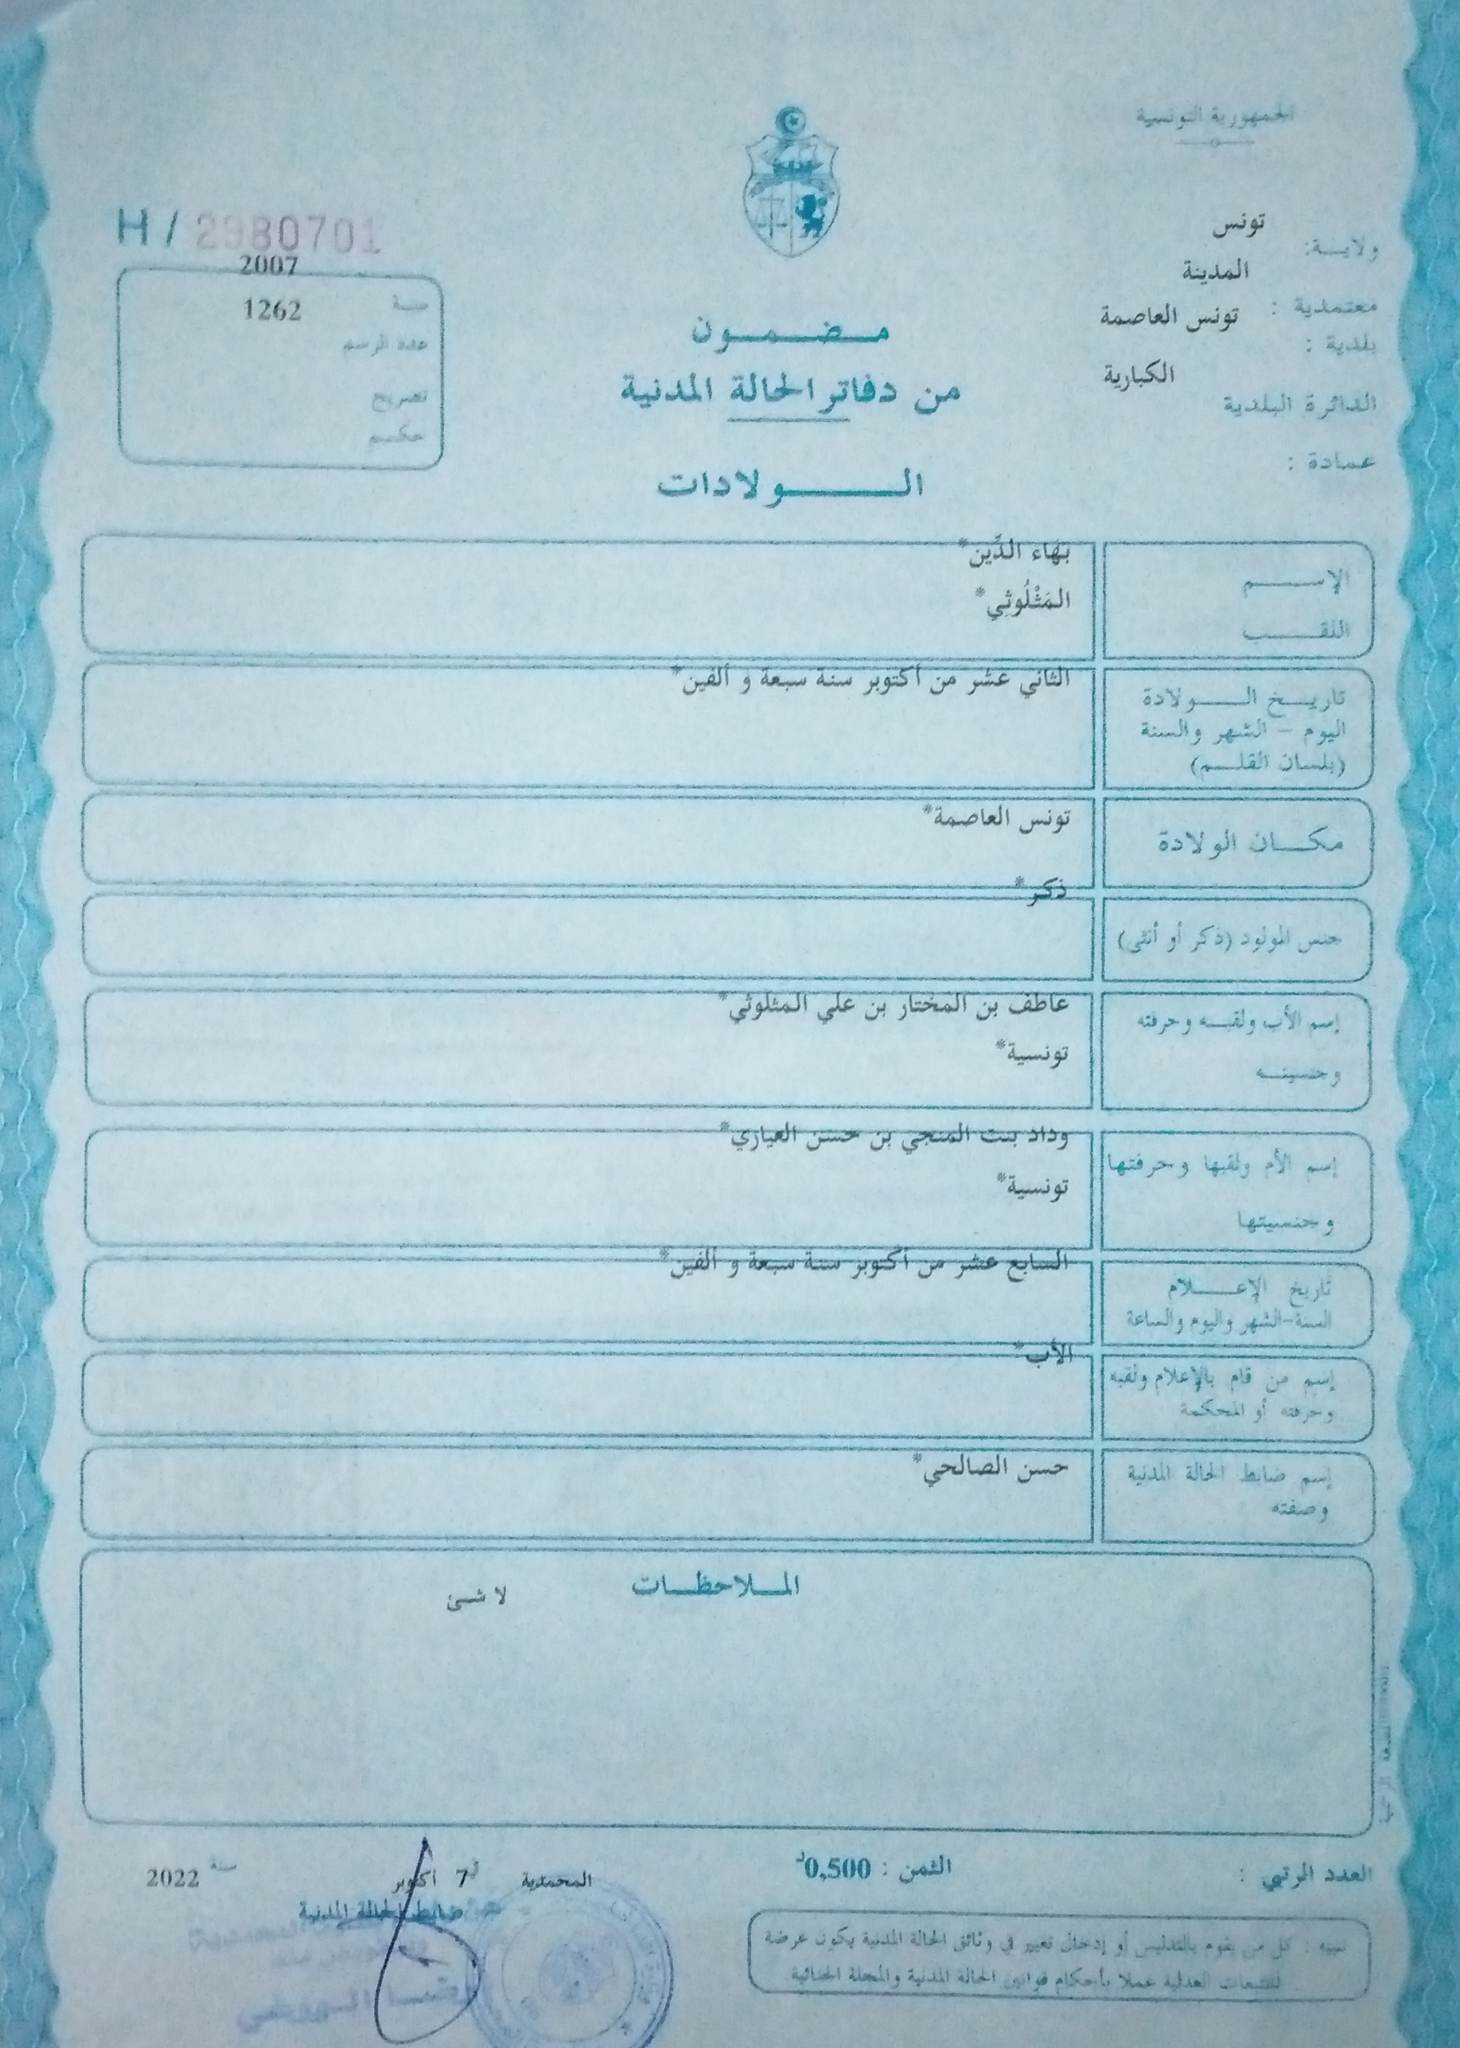 الجمهورية التونسية
ولاية: تونس
معتمدية : المدينة
بلدية : تونس العاصمة
الدائرة البلدية الكبارية
عمادة :
H / 2980701
سنة 2007
عدد الرسم 1262
تصريح
حكم
مضمون
من دفاتر الحالة المدنية
الولادات
الإسم بَهَاء الدِّين*
اللقب المَثْلُوثِي*
تاريخ الولادة
اليوم - الشهر والسنة
(بلسان القلم)
الثاني عشر من أكتوبر سنة سبعة و ألفين*
مكان الولادة تونس العاصمة*
جنس المولود (ذكر أو أنثى) ذكر*
إسم الأب ولقبه وحرفته عاطف بن المختار بن علي المثلوثي*
وجنسيته تونسية*
إسم الأم ولقبها وحرفتها وداد بنت المنجي بن حسن العياري*
وجنسيتها تونسية*
تاريخ الإعلام
السنة-الشهر واليوم والساعة
السابع عشر من أكتوبر سنة سبعة و ألفين*
إسم من قام بالإعلام ولقبه
وحرفته أو المحكمة
الأب*
إسم ضابط الحالة المدنية
وصفته
حسن الصالحي*
الملاحظات
لا شئ
العدد الرتبي :
الثمن : 0,500د
المحمدية في 7 أكتوبر سنة 2022
ضابط الحالة المدنية
تنبيه : كل من يقوم بالتدليس أو إدخال تغيير في وثائق الحالة المدنية يكون عرضة
للتتبعات العدلية عملا بأحكام قوانين الحالة المدنية والمجلة الجنائية